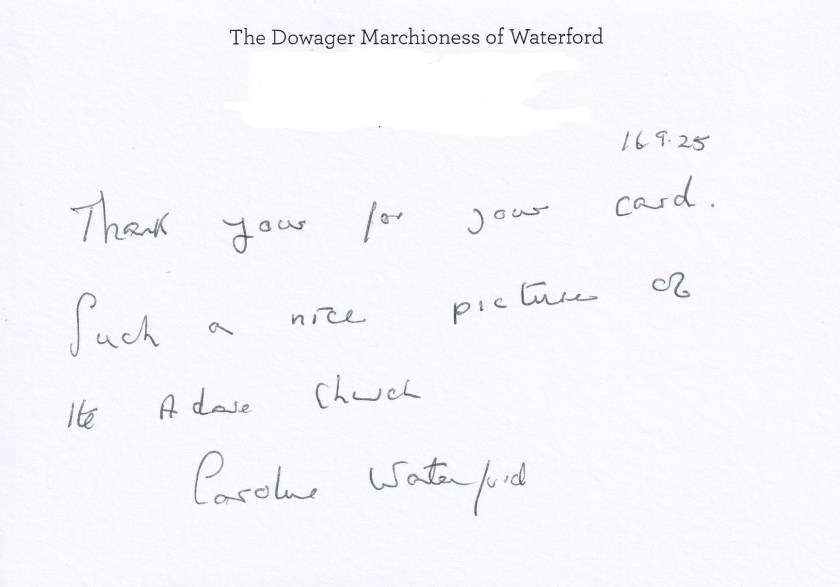 The Dowager Marchioness of Waterford
16 9.25
Thank your for your card.
Such a nice picture of
the Adare Church
Caroline Waterford